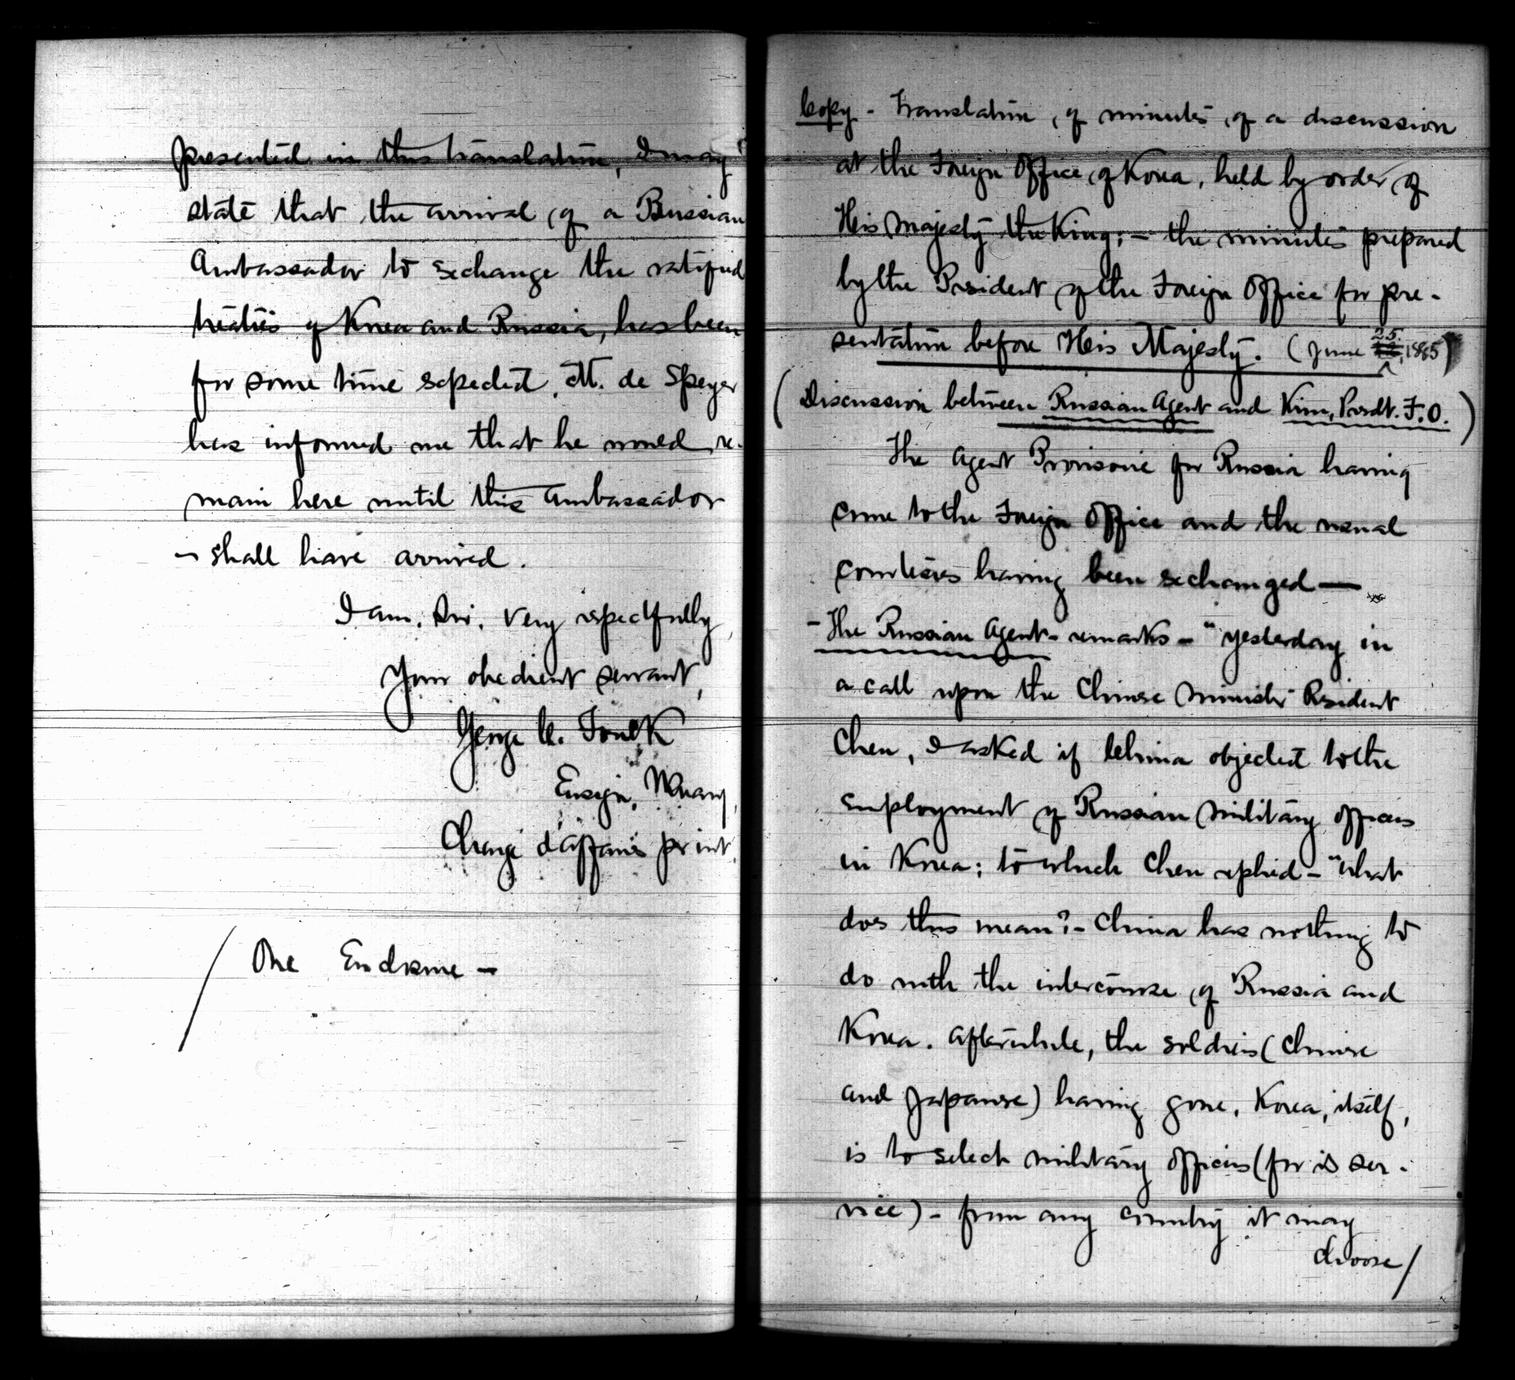 presented in this translation, I may
state that the arrival of a Russian
Ambassador to exchange the ratified
treaties of Korea and Russia, has been
for some time expected. M. de Speyer
has informed me that he would re-
main here until this Ambassador
- shall have arrived.
I am, Sir, very respectfully,
Your obedient servant,
George C. Foulk
Ensign, U.S. Navy,
Chargé d'affaires pr int.
/ One Enclosure -
Copy - Translation, of minutes, of a discussion
at the Foreign Office, of Korea, held by order, of
His Majesty the King; - the minutes prepared
by the President of the Foreign Office for pre-
sentation before His Majesty. (June 25, 1885)
(Discussion between Russian Agent and Kim, Presdt. F.O.)
The Agent Provisoire for Russia having
come to the Foreign Office and the usual
courtesies having been exchanged —
- The Russian Agent - remarks - "Yesterday in
a call upon the Chinese Minister Resident
Chen, I asked if China objected to the
employment of Russian military officers
in Korea; to which Chen replied - "What
does this mean? - China has nothing to
do with the intercourse, of Russia and
Korea. Afterwhile, the soldiers (Chinese
and Japanese) having gone, Korea, itself,
is to select military officers (for is ser-
vice) - from any country it may
choose /